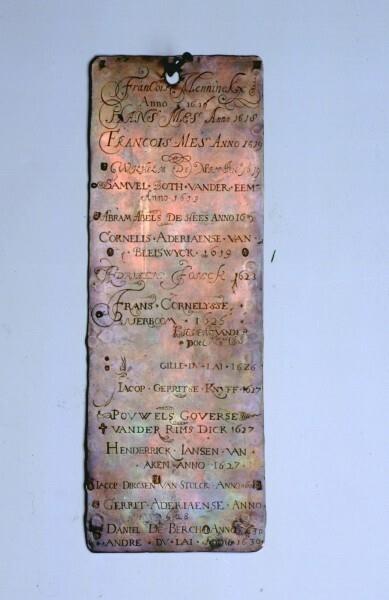 Francois Menninckx
Anno 1619
HANS MES Anno 1618
FRANCOIS MES ANNO 1619
WILHELM DE
SAMVEL BOTH VANDER EEM
Anno 1619
ABRAM ABELS DE HEES ANNO
CORNELIS ADERIAENSE VAN
BLEISWYCK 1619
1623
FRANS CORNELYSSE
1625
GILLE DV LAI 1626
IACOP GERRITSE KNYFF 1627
POVWELS GOVERSE
VANDER RIMS DICK 1627
HENDERRICK IANSEN VAN
AKEN ANNO 1627
IACOP DIRCSEN VAN STOLCK ANNO
GERRIT ADERIAENSE ANNO
1628
DANIEL DE BERCH ANNO 1630
ANDRE DV LAI ANNO 1630